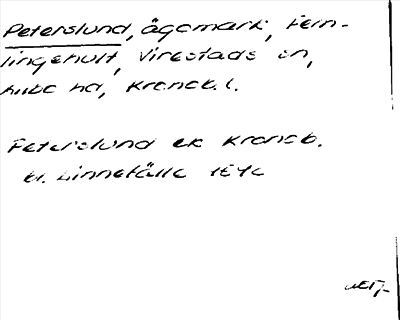 Peterslund, ägomark, Fem-
lingehult, Virestads sn,
Allbo hd, Kronob. l.
Peterslund ek Kronob.
bl. Linnefälle